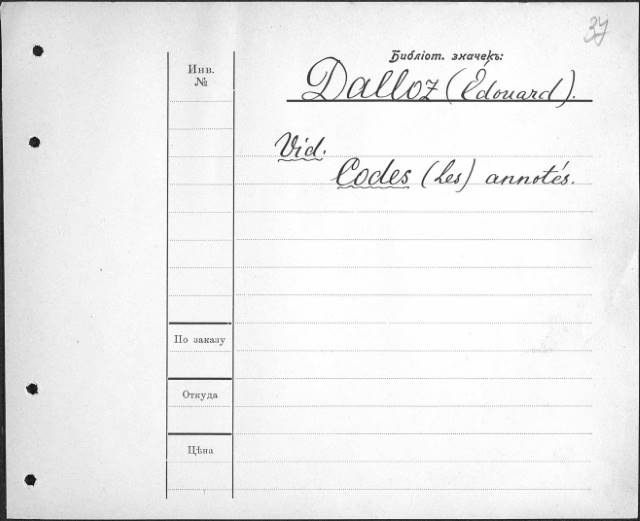 37
Библіот. значекъ:
Инв.
№
Dalloz (Édouard).
Vid.
Codes (Les) annotés.
По заказу
Откуда
Цѣна